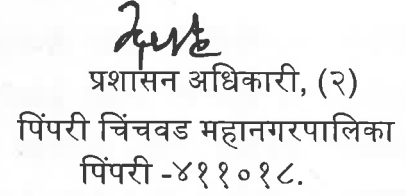 प्रशासन अधिकारी, (२)
पिंपरी चिंचवड महानगरपालिका
पिंपरी -४११०१८.